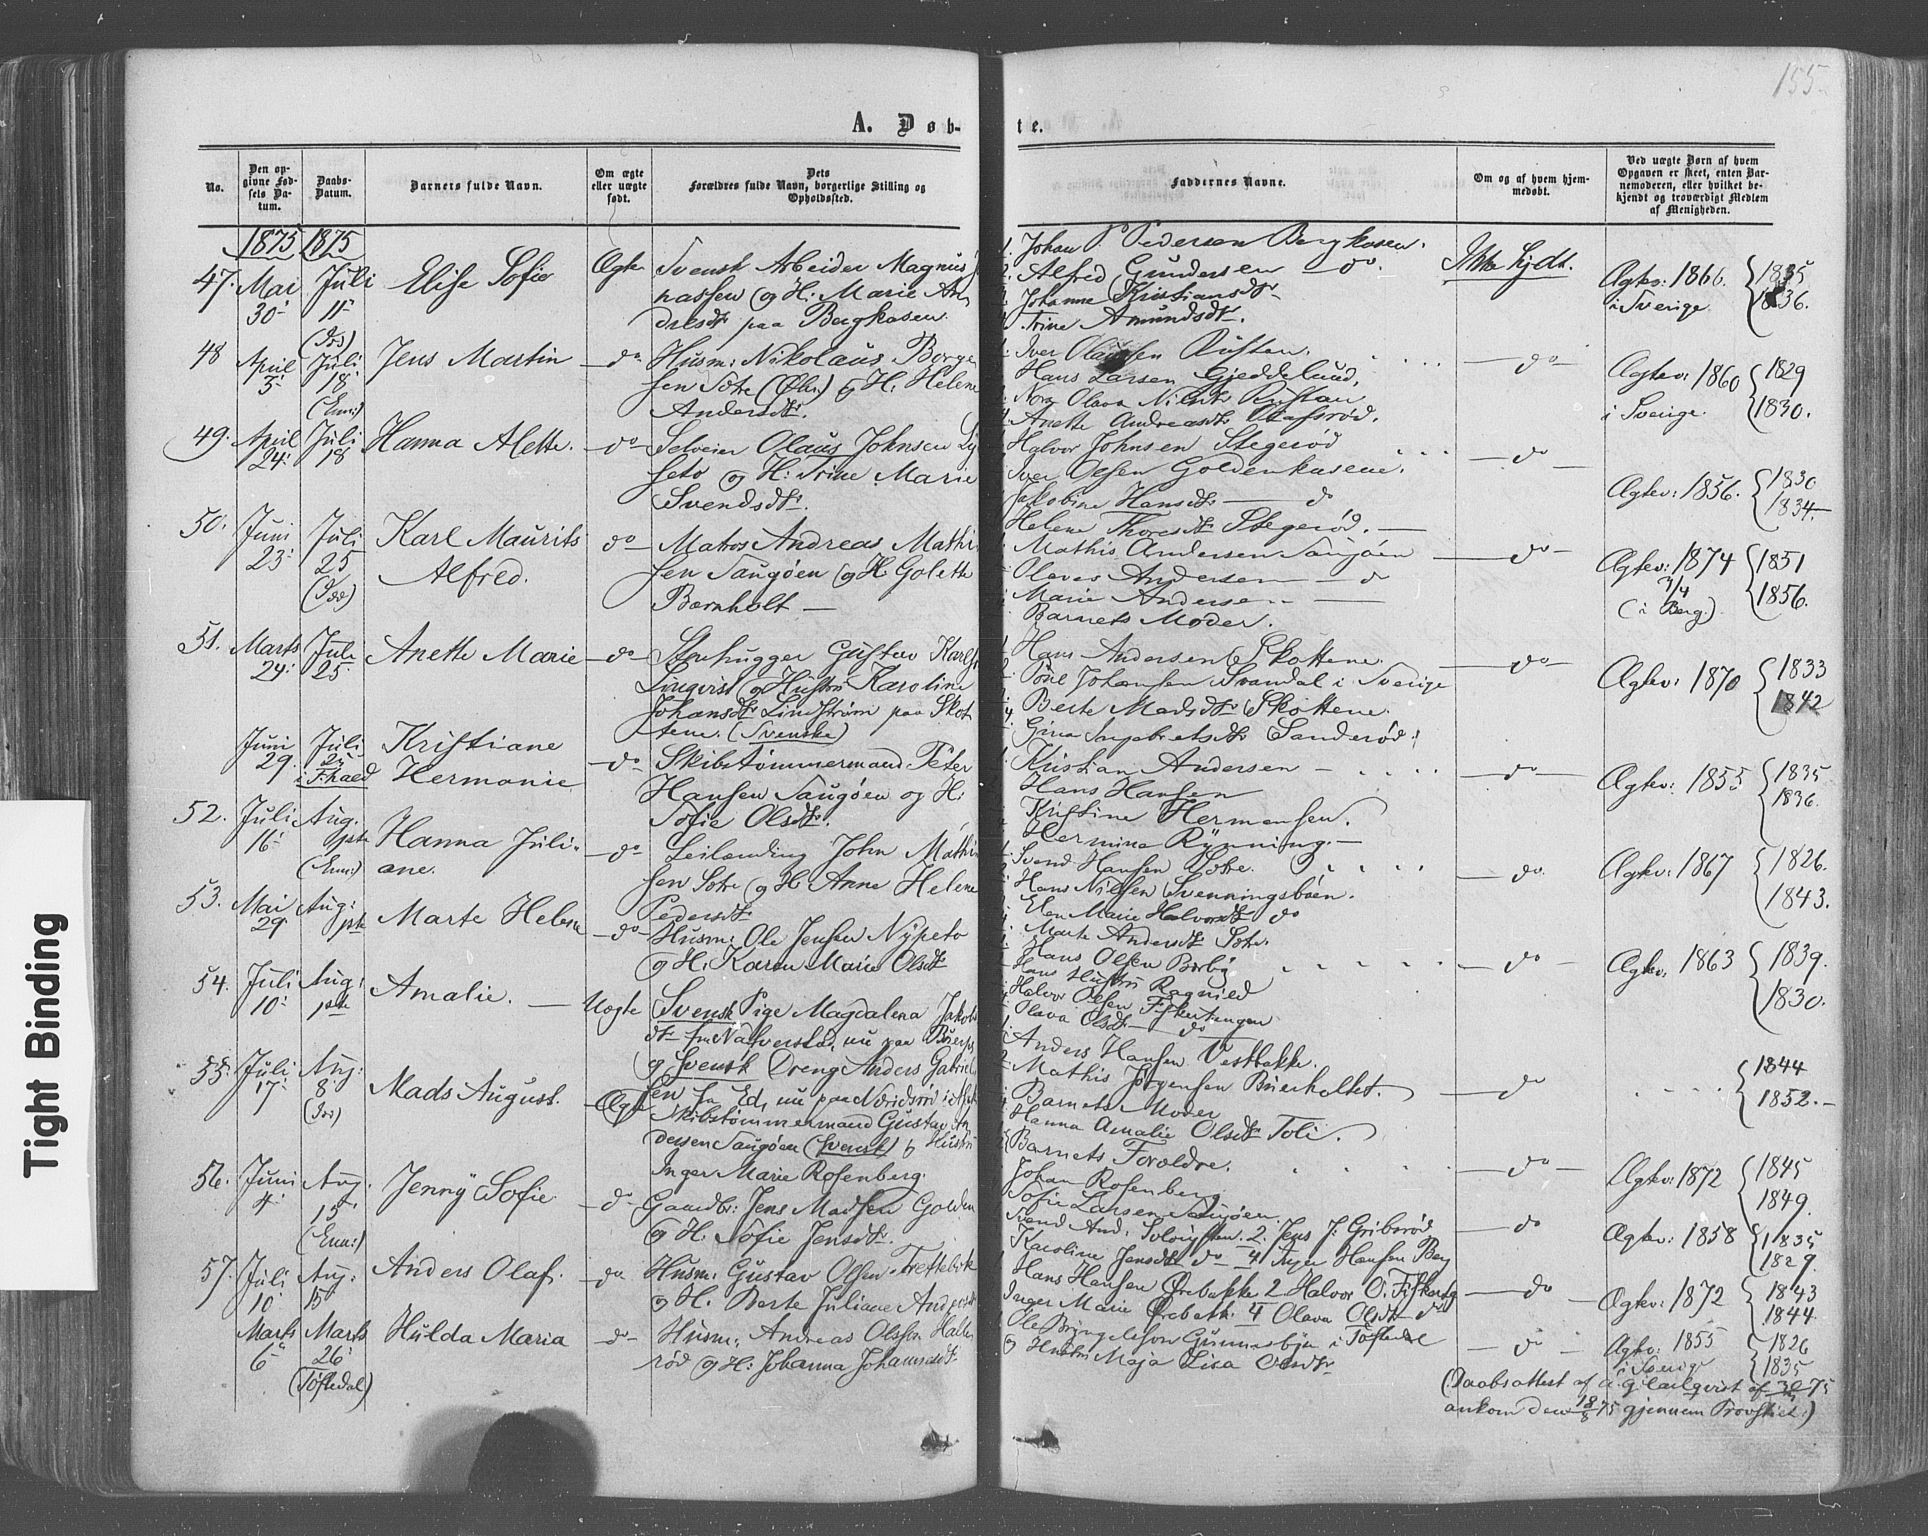 155
A. Døb-
te.
No.
Den op-
givne Fød-
sels Da-
tum.
Daabs-
Datum.
Barnets fulde Navn.
Om ægte
eller uægte
født.
Dets
Forældres fulde Navn, borgerlige Stilling og
Opholdssted.
Faddernes Navne.
Om og af hvem hjem-
medøbt.
Ved uægte Børn af hvem
Opgaven er skeet, enten Bar-
nemoderen, eller hvilket be-
kjendt og troværdigt Medlem
af Menigheden.
1875 1875
47. Mai 30 Juli 11 (Id) Elise Sofie Ægte
Svensk Arbeider Magnus
nassen og H: Marie An-
dresdt paa Bergkasen
1. Johan P. Pedersen Bergkasen.
2. Alfred Gundersen do.
Johanne Kristiansdt
Trine Amundsdt.
Ikke hjdt.
Ægtev: 1866. 1835
i Sverige 1836.
48 April 3 Juli 18 (Enn:) Jens Martin do
Husm: Nikolaus Borge
sen Sætre (Øbr:) og H: Helene
Andersdt.
Iver Olaussen Rusten.
Hans Larsen Gjeddelund,
Olava Nilsdt Rustan
Anette Andreasdt Olafsrød.
do
Ægtev: 1860 1829
i Sverige. 1830.
49. April 24 Juli 18 Hanna Alette. do
Selveier Olaus Johnsen Ly
seto og H: Trine Marie
Svendsdt.
Halvor Johnsen Stegerød
Iver Olsen Goldenkasene.
Jakobine Hansdt do
Helene Thoresdt Stegerød.
do
Ægtev: 1856. 1830
1834.
50. Juni 23 Juli 25 (Idd) Karl Maurits
Alfred. do
Matros Andreas Mathi
sen Saugøen og H: Golette
Bornholt
Mathis Andersen Saugøen
Olaves Andersen do
Marie Andersen
Barnets Moder.
do
Ægtev: 1874 1851
7/4 (i Berg). 1856.
51. Marts 24 Juli 25 Anette Marie do
Stenhugger Gustav Karls
Lingvist og Hustru Karoline
Johansdt Lindstrøm paa Skot
tene. (Svenske)
Hans Andersen Skottene.
Johansen Svandal i Sverige
Berte Madsdt Skottene.
Gina Ingebretsdt Sanderød.
do
Ægtev: 1870 1833
1842
Juni 29 Juli 25 i Fhald Kristiane
Hermanie do
Skibstømmermand Peter
Hansen Saugøen og H:
Sofie Olsdt.
Kristian Andersen
Hans Hansen
Kristine Hermansen.
Hermina Rynning.
do
Ægtev: 1855 1835
1836.
52. Juli 16 Aug. 1ste (Enn:) Hanna Juli-
ane. do
Leilænding John Mathi
sen Sætre og H: Anne Helene
Pedersdt
Svend Hansen Sætre.
Hans Nilsen Svenningsbøen.
Elen Marie Halvorsdt do
Marte Andersdt Sætre.
do
Ægtev: 1867 1826.
1843.
53. Mai 29 Aug: 1ste Marte Helene do
Husm: Ole Jensen Nypeto
og H: Karen Marie Olsdt
Hans Olsen Borby
Hans Hustru Ragnild
Halvor Olsen Fiskertangen
Olava Olsdt do
do
Ægtev: 1863 1839.
1830.
54. Juli 10 Aug: 1ste Amalie. Uægte
Svensk Pige Magdalena Jakobs
dt fra Natversta, nu paa
og Svensk Dreng Anders Gabriel
sen fra Ed, nu paa
Anders Hansen Vestbakke.
Mathis Jørgensen Bøierholtet.
Barnets Moder
Hanna Amalie Olsdt Toli.
do
1844
1852.
55. Juli 17 Aug: 8 (Idd) Mads August. Ægte
Skibstømmermand Gustav An
dersen Saugøen (Svensk) og Hustru
Inger Marie Rosenberg.
Barnets Forældre.
Johan Rosenberg
Sofie Larsen Saugøen
do
Ægtev: 1872 1845
1849.
56. Juni 4 Aug. 15 (Enn:) Jenny Sofie do
Gaardbr: Jens Madsen Golden
og H: Sofie Jensdt.
Svend And: 2. Jens J. Gribsrød
Karoline Jensdt do 4 Inger Hansen Berg
do
Ægtev: 1858 1835
1829.
57. Juli 10 Aug: 15 Anders Olaf. do
Husm: Gustav Olsen Trettebæk
og H: Berte Juliane Andersdt
1 Hans Hansen Ørebakke 2 Halvor O: Fiskertg
Inger Marie Ørebakk 4 Olava Olsdt do
do
Ægtev: 1872 1843
1844.
Marts 6 Marts 26 (Tøftedal) Hulda Maria do
Husm: Andreas Olsson Halle
rød og H: Johanna Johannesdt
Ole Bryngelsson Gunnarsbyn i Tøftedal
og Hustru Maja Lisa Olsdt
do
Ægtev: 1855 1826
i Sverige 1835
(Daabsattest af af 75
ankom den 18/8 75 gjennem Provstiet.)
Tight Binding